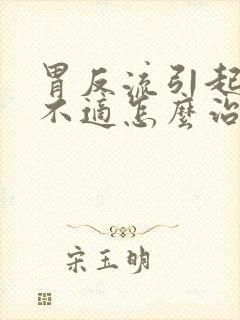 胃反流引起
不適怎麼治
宋玉明